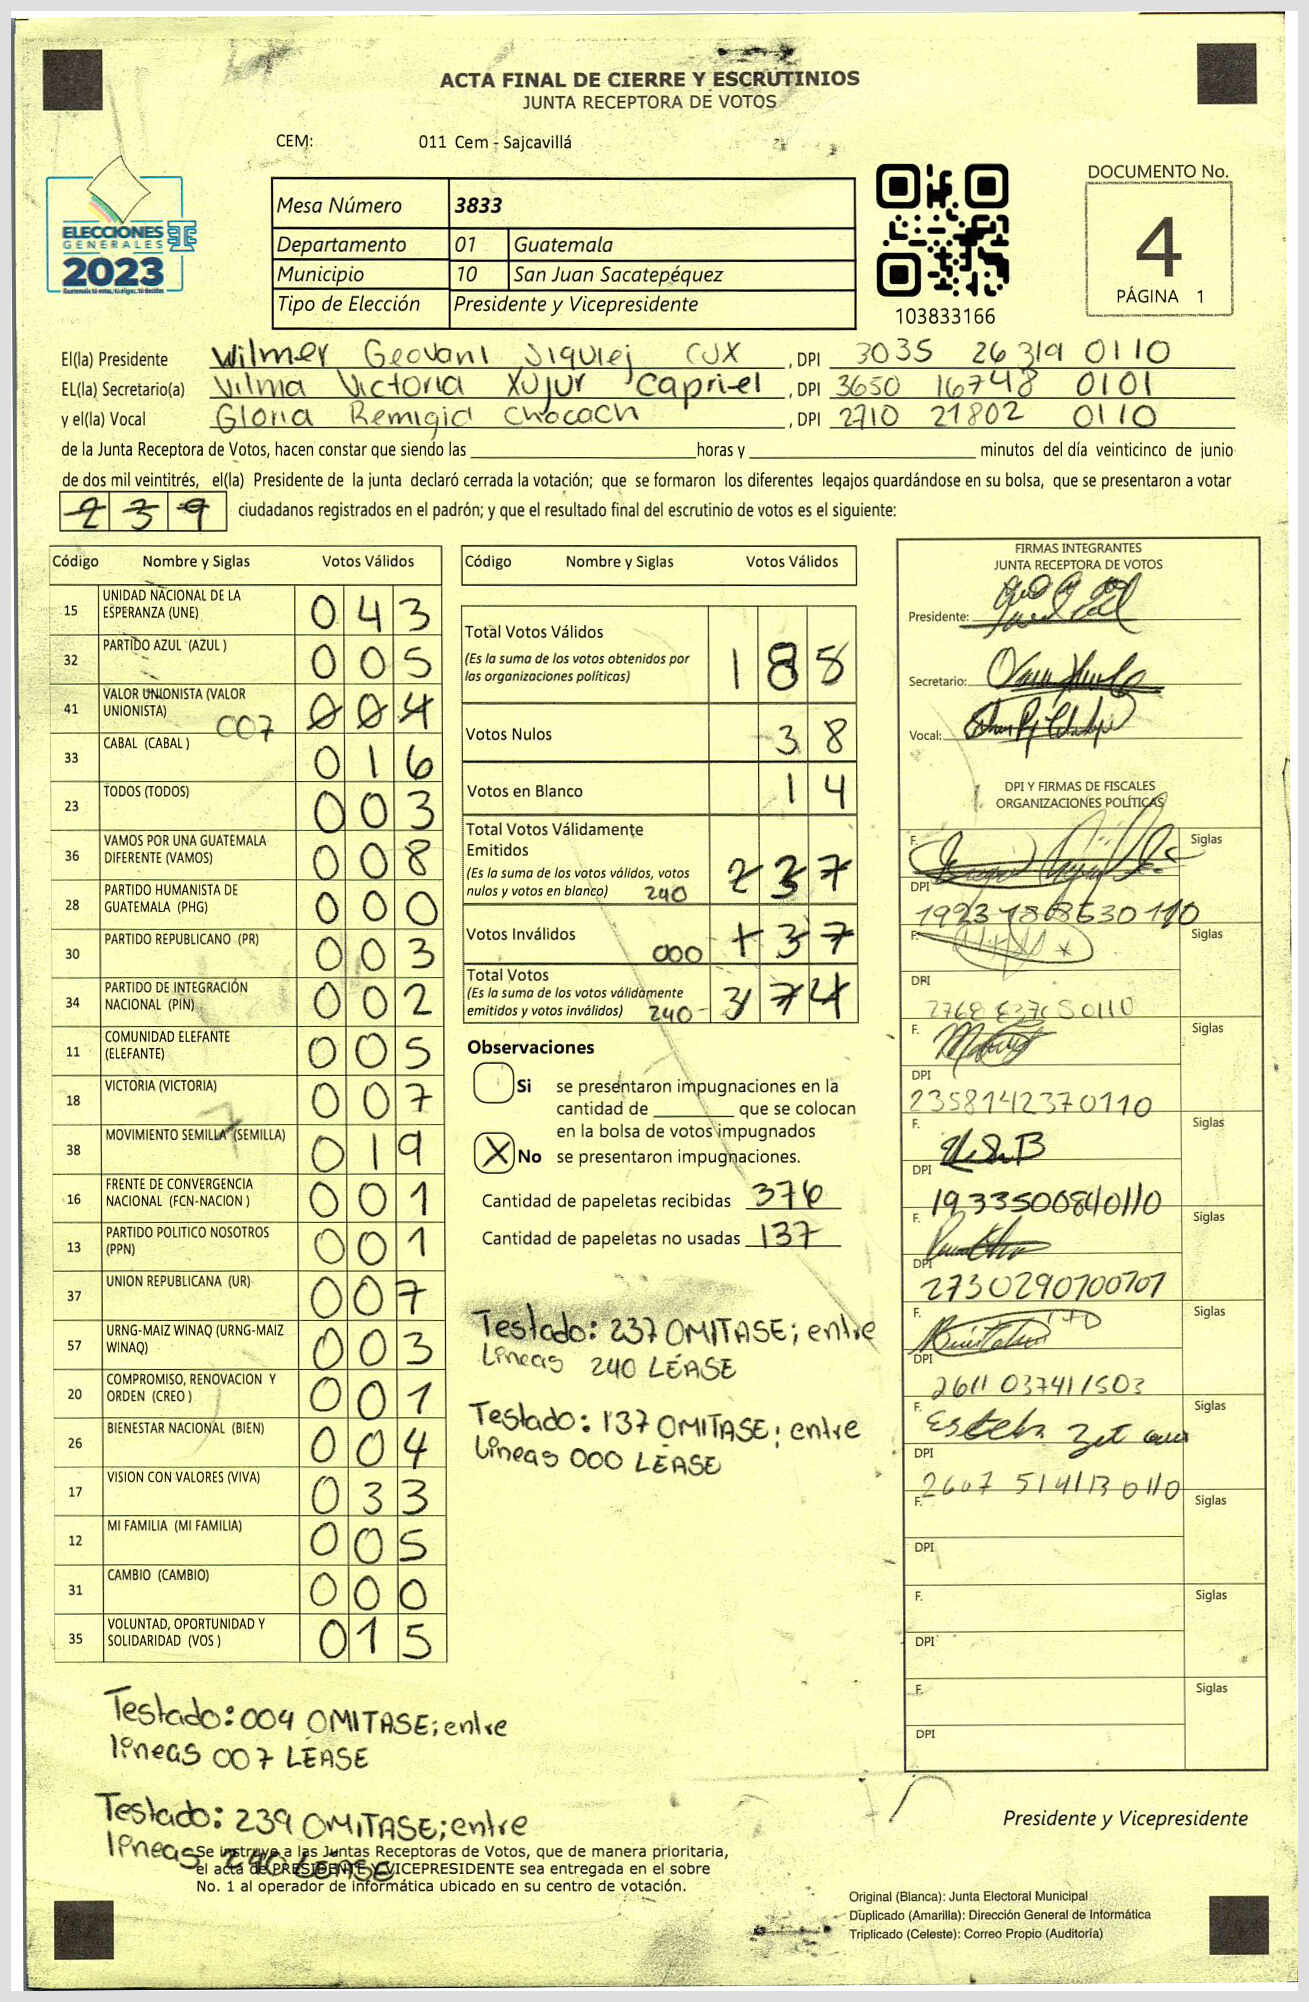 ACTA FINAL DE CIERRE Y ESCRUTINIOS
JUNTA RECEPTORA DE VOTOS
CEM: 011 Cem - Sajcavillá
DOCUMENTO No.
4
PÁGINA 1
ELECCIONES
GENERALES
2023
Mesa Número 3833
Departamento 01 Guatemala
Municipio 10 San Juan Sacatepéquez
Tipo de Elección Presidente y Vicepresidente
103833166
El(la) Presidente Wilmer Geovani Siquiej CUX , DPI 3035 26319 0110
EL(la) Secretario(a) Vilma Victoria Xujur Capriel , DPI 3650 16748 0101
y el(la) Vocal Gloria Remigia Chocach , DPI 2710 21802 0110
de la Junta Receptora de Votos, hacen constar que siendo las horas y minutos del día veinticinco de junio
de dos mil veintitrés, el(la) Presidente de la junta declaró cerrada la votación; que se formaron los diferentes legajos guardándose en su bolsa, que se presentaron a votar
239 ciudadanos registrados en el padrón; y que el resultado final del escrutinio de votos es el siguiente:
Código Nombre y Siglas Votos Válidos
15 UNIDAD NACIONAL DE LA
ESPERANZA (UNE) 043
32 PARTIDO AZUL (AZUL ) 005
41 VALOR UNIONISTA (VALOR
UNIONISTA) 007 004
33 CABAL (CABAL ) 016
23 TODOS (TODOS) 003
36 VAMOS POR UNA GUATEMALA
DIFERENTE (VAMOS) 008
28 PARTIDO HUMANISTA DE
GUATEMALA (PHG) 000
30 PARTIDO REPUBLICANO (PR) 003
34 PARTIDO DE INTEGRACIÓN
NACIONAL (PIN) 002
11 COMUNIDAD ELEFANTE
(ELEFANTE) 005
18 VICTORIA (VICTORIA) 007
38 MOVIMIENTO SEMILLA (SEMILLA) 019
16 FRENTE DE CONVERGENCIA
NACIONAL (FCN-NACION ) 001
13 PARTIDO POLITICO NOSOTROS
(PPN) 001
37 UNION REPUBLICANA (UR) 007
57 URNG-MAIZ WINAQ (URNG-MAIZ
WINAQ) 003
20 COMPROMISO, RENOVACION Y
ORDEN (CREO ) 001
26 BIENESTAR NACIONAL (BIEN) 004
17 VISION CON VALORES (VIVA) 033
12 MI FAMILIA (MI FAMILIA) 005
31 CAMBIO (CAMBIO) 000
35 VOLUNTAD, OPORTUNIDAD Y
SOLIDARIDAD (VOS ) 015
Testado: 004 OMITASE; entre
líneas 007 LÉASE
Testado: 239 OMITASE; entre
líneas 240 LÉASE
Código Nombre y Siglas Votos Válidos
Total Votos Válidos
(Es la suma de los votos obtenidos por
las organizaciones políticas) 188
Votos Nulos 38
Votos en Blanco 14
Total Votos Válidamente
Emitidos
(Es la suma de los votos válidos, votos
nulos y votos en blanco) 240 237
Votos Inválidos 000 137
Total Votos
(Es la suma de los votos válidamente
emitidos y votos inválidos) 240 374
Observaciones
Si se presentaron impugnaciones en la
cantidad de que se colocan
en la bolsa de votos impugnados
X No se presentaron impugnaciones.
Cantidad de papeletas recibidas 376
Cantidad de papeletas no usadas 137
Testado: 237 OMITASE; entre
Líneas 240 LÉASE
Testado: 137 OMITASE; entre
líneas 000 LÉASE
FIRMAS INTEGRANTES
JUNTA RECEPTORA DE VOTOS
Presidente:
Secretario:
Vocal:
DPI Y FIRMAS DE FISCALES
ORGANIZACIONES POLÍTICAS
F. Siglas
DPI
F. Siglas
DPI
F. Siglas
DPI
2358142370110
F. Siglas
DPI
1933500840110
F. Siglas
DPI
2730290700707
F. Siglas
DPI
2611 037411503
F. Siglas
DPI
F. Siglas
DPI
F. Siglas
DPI
F. Siglas
DPI
Presidente y Vicepresidente
Se instruye a las Juntas Receptoras de Votos, que de manera prioritaria,
el acta de PRESIDENTE Y VICEPRESIDENTE sea entregada en el sobre
No. 1 al operador de informática ubicado en su centro de votación.
Original (Blanca): Junta Electoral Municipal
Duplicado (Amarilla): Dirección General de Informática
Triplicado (Celeste): Correo Propio (Auditoría)